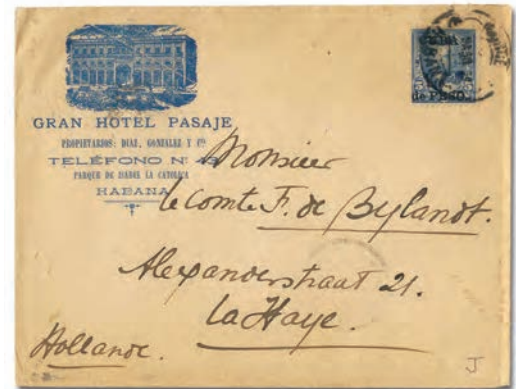 GRAN HOTEL PASAJE
PROPIETARIOS: DIAZ, GONZALEZ Y Cª
TELÉFONO Nº
PARQUE DE ISABEL LA CATOLICA
HABANA
Monsieur
le comte F. de Bylandt.
Alexanderstraat 21.
la Haye.
Hollande.
de PESO.
J